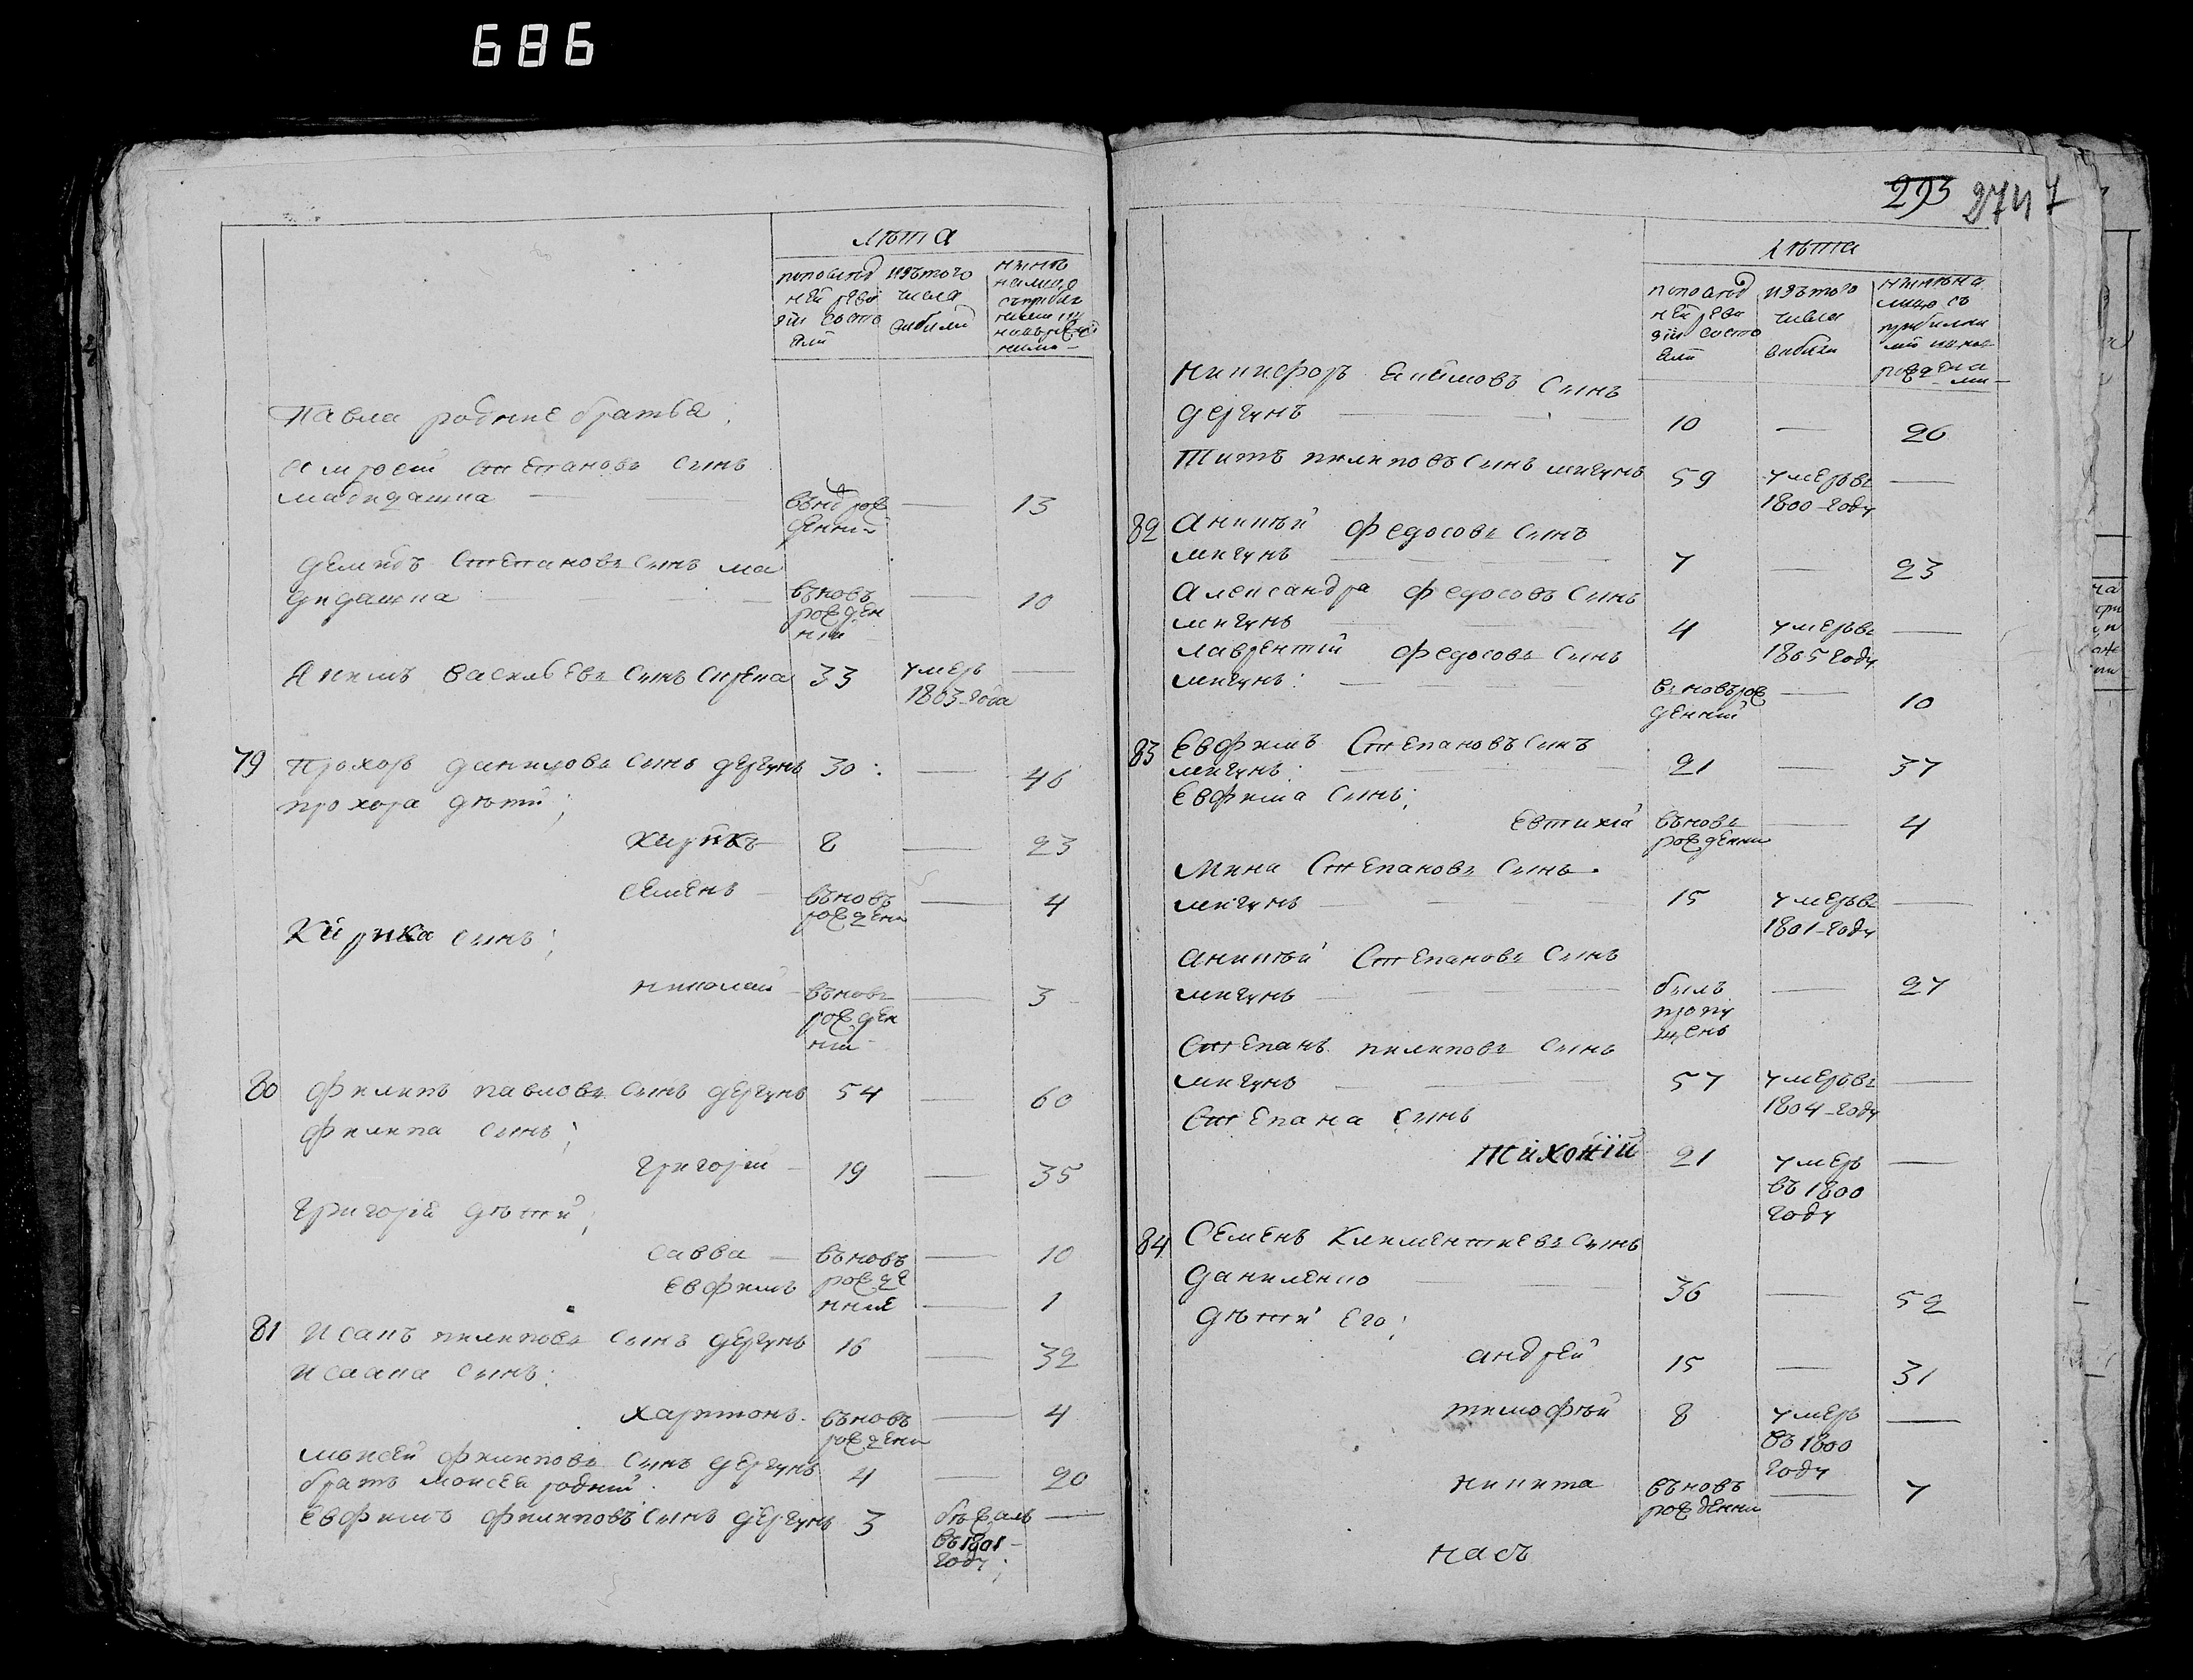 686
лѣта
попослѣд
ней реви
зіи состо
яли
изътого
числа
выбыли
нынѣ
налицо
съприбыл
ными
ми
Павла родние братья;
степановъ сынъ
мадидашка
вънов рож
денний
—
13
демидъ Степановъ сынъ ма
дидашка
въновь
рожден
ний
—
10
Якимъ васильевъ сынъ
33
умеръ
1803-года
—
79
Прохоръ даниловъ сынъ дергунъ
30
—
46
прохора дѣти;
Кирикъ
8
—
23
семенъ
въновь
рожденн
—
4
Кирика сынъ;
николай
въновь
рожден
ний
—
3
80
Филипъ павловъ сынъ дергунъ
54
—
60
филипа сынъ;
григорій
19
—
35
григорія дѣти;
савва
въновь
—
10
евфимъ
рожде
нние
—
1
81
Исакъ пилиповъ сынъ дергунъ
16
—
32
исаака сынъ;
харитонъ
въновь
рожденн
—
4
моисей филиповъ сынъ дергунъ
4
—
20
братъ моисея родний
евфимъ филиповъ сынъ дергунъ
3
бѣжалъ
въ 1801
году;
—
293 274 7
лѣта
попослѣд
ней реви
зіи состо
яли
изътого
числа
выбыли
нынѣ на
лицо съ
прибылы
ми и нов
рожденны
ми
никифоръ екимовъ сынъ
дергунъ
10
—
26
Титъ пилиповъ сынъ мигунъ
59
умеръ въ
1800-году
—
82
Аникѣй федосовъ сынъ
мигунъ
7
—
23
Александра федосовъ сынъ
мигунъ
4
умеръ въ
1805 году
—
лаврентій федосовъ сынъ
мигунъ:
въновърож
денний
—
10
83
Евфимъ Степановъ сынъ
мигунъ:
21
—
37
Евфима сынъ;
Евтихій
въновь
рожденни
—
4
Мина Степановъ сынъ
мигунъ
15
умеръ въ
1801-году
—
аникѣй Степановъ сынъ
мигунъ
былъ
пропу
щенъ
—
27
Степанъ пилиповъ сынъ
мигунъ
57
умеръ въ
1804-году
—
Степана сынъ
Тихоній
21
умеръ
въ 1800
году
—
84
Семенъ Климентиевъ сынъ
даниленко
36
—
52
Дѣти его;
андрей
15
—
31
тимофѣй
8
умеръ
въ 1800
году
—
никита
въновь
рожденни
—
7